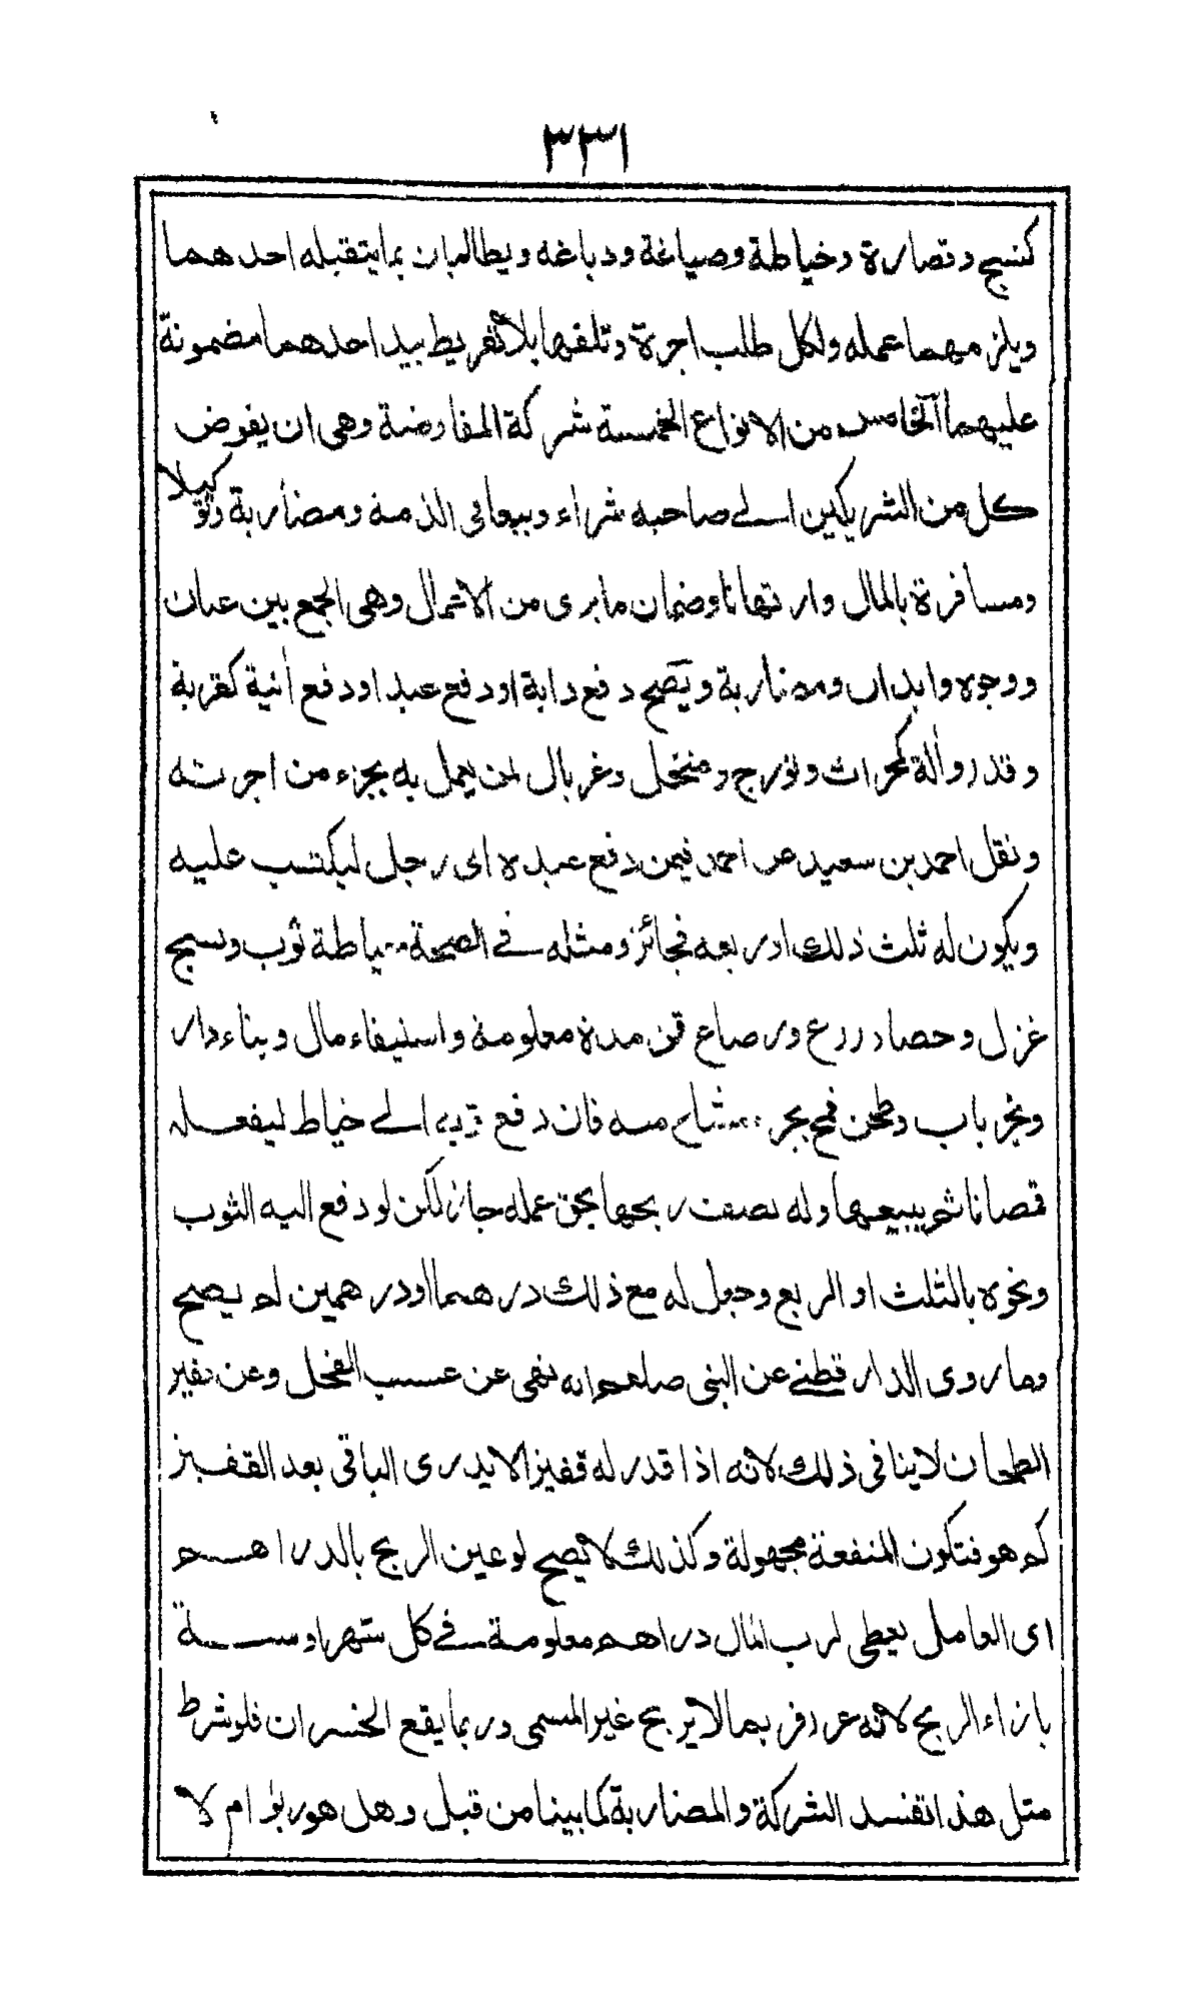 ٣٣١
كنسج وقصارة وخياطة وصياغة ودباغه ويطالبان بما يتقبله احدهما
ويلزمهما عمله ولكل طلب اجرة وتلفها بلا تفريط بيد احدهما مضمونة
عليهما آلخامس من الانواع الخمسة شركة المفاوضة وهى ان يفوض
كل من الشريكين الى صاحبه شراء وبيعا فى الذمة ومضاربة وتوكيلا
ومسافرة بالمال وارتهانا وضمان ما يرى من الاعمال وهى الجمع بين عنان
ووجوه وابدان ومضاربة ويصح دفع دابة او دفع عبد او دفع آنية كقربة
وقدر وآلة كمحراث ونورج ومنخل وغربال لمن يعمل به بجزء من اجرته
ونقل احمد بن سعيد عن احمد فيمن دفع عبده الى رجل ليكتسب عليه
ويكون له ثلث ذلك او ربعه فجائز ومثله فى الصحة خياطة ثوب ونسج
غزل وحصاد زرع ورضاع قن مدة معلومة واستيفاء مال وبناء دار
ونجر باب وطحن قمح بجزء مشاع منه فان دفع ثوبه الى خياط ليفعله
قمصانا ثم يبيعها وله نصف ربحها بحق عمله جاز لكن لو دفع اليه الثوب
ونحوه بالثلث او الربع وجعل له مع ذلك درهما او درهمين لم يصح
وما روى الدارقطنى عن النبى صلعم انه نهى عن عسب الفحل وعن قفيز
الطحان لا ينافى ذلك لانه اذا قدر له قفيزا لا يدرى الباقى بعد القفيز
كم هو فتكون المنفعة مجهولة وكذلك لا يصح لو عين الربح بالدراهم
اى العامل يعطى لرب المال دراهم معلومة فى كل شهر او سنة
بازاء الربح لانه غرر فربما لا يربح غير المسمى وربما يقع الخسران فلو شرط
مثل هذا تفسد الشركة والمضاربة كما بينا من قبل وهل هو ربوا ام لا